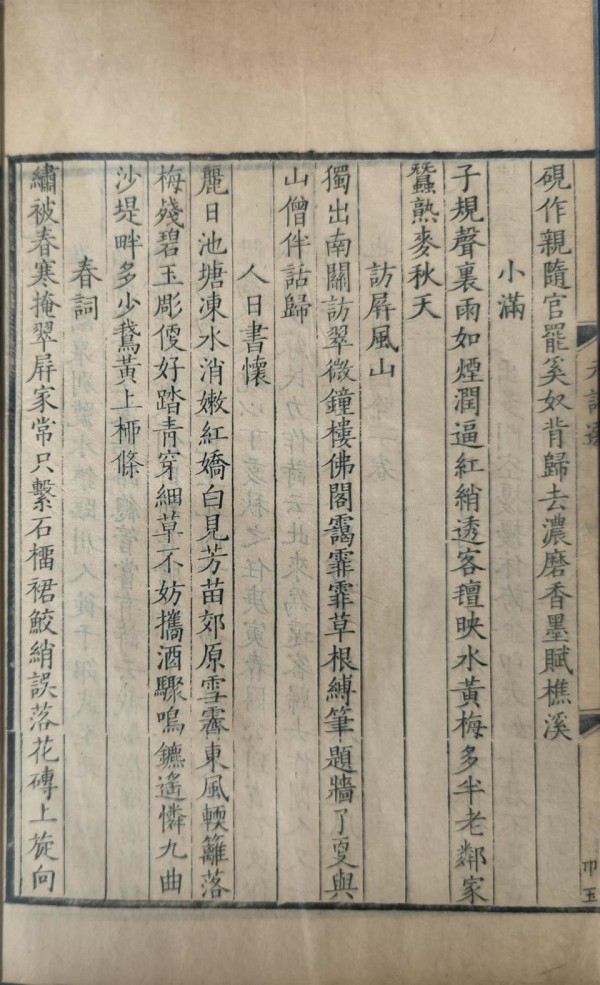 硯作親隨官罷奚奴肯歸去濃磨香墨賦樵溪
小滿
子規聲裏雨如煙潤逼紅綃透客氊映水黃梅多半老鄰家
蠶熟麥秋天
訪屏風山
獨出南關訪翠微鐘樓佛閣靄霏霏草根縛筆題牆了更與
山僧伴話歸
人日書懷
麗日池塘凍水消嫩紅嬌白見芳苗郊原雪霽東風輭籬落
梅殘碧玉彫優好踏青穿細草不妨攜酒驟嗚鑣遙憐九曲
沙堤畔多少鵞黃上桺條
春詞
繡被春寒掩翠屏家常只繫石橊裙鮫綃誤落花磚上旋向
元詩選
巾五